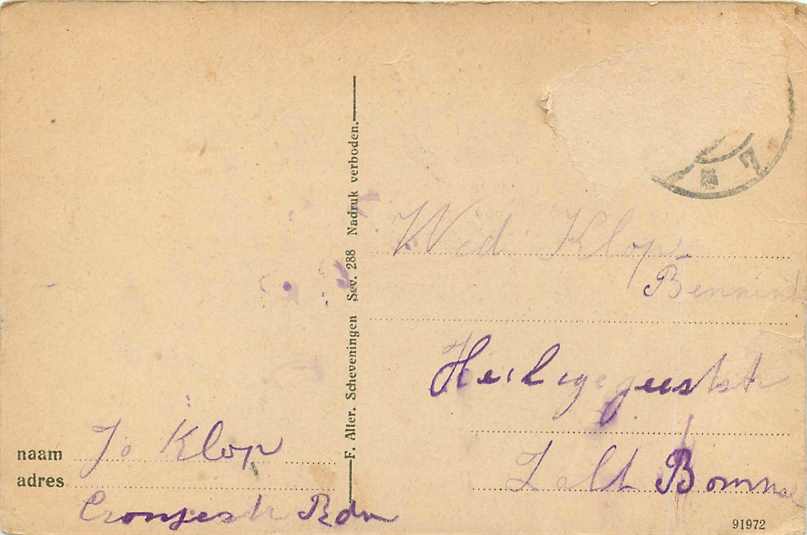 Wed. Klop
Bennink
Heiligegeeststr
Zalt Bommel
F. Alter. Scheveningen Sev. 288 Nadruk verboden.
naam Jo Klop
adres Cronjestr Rdm
91972